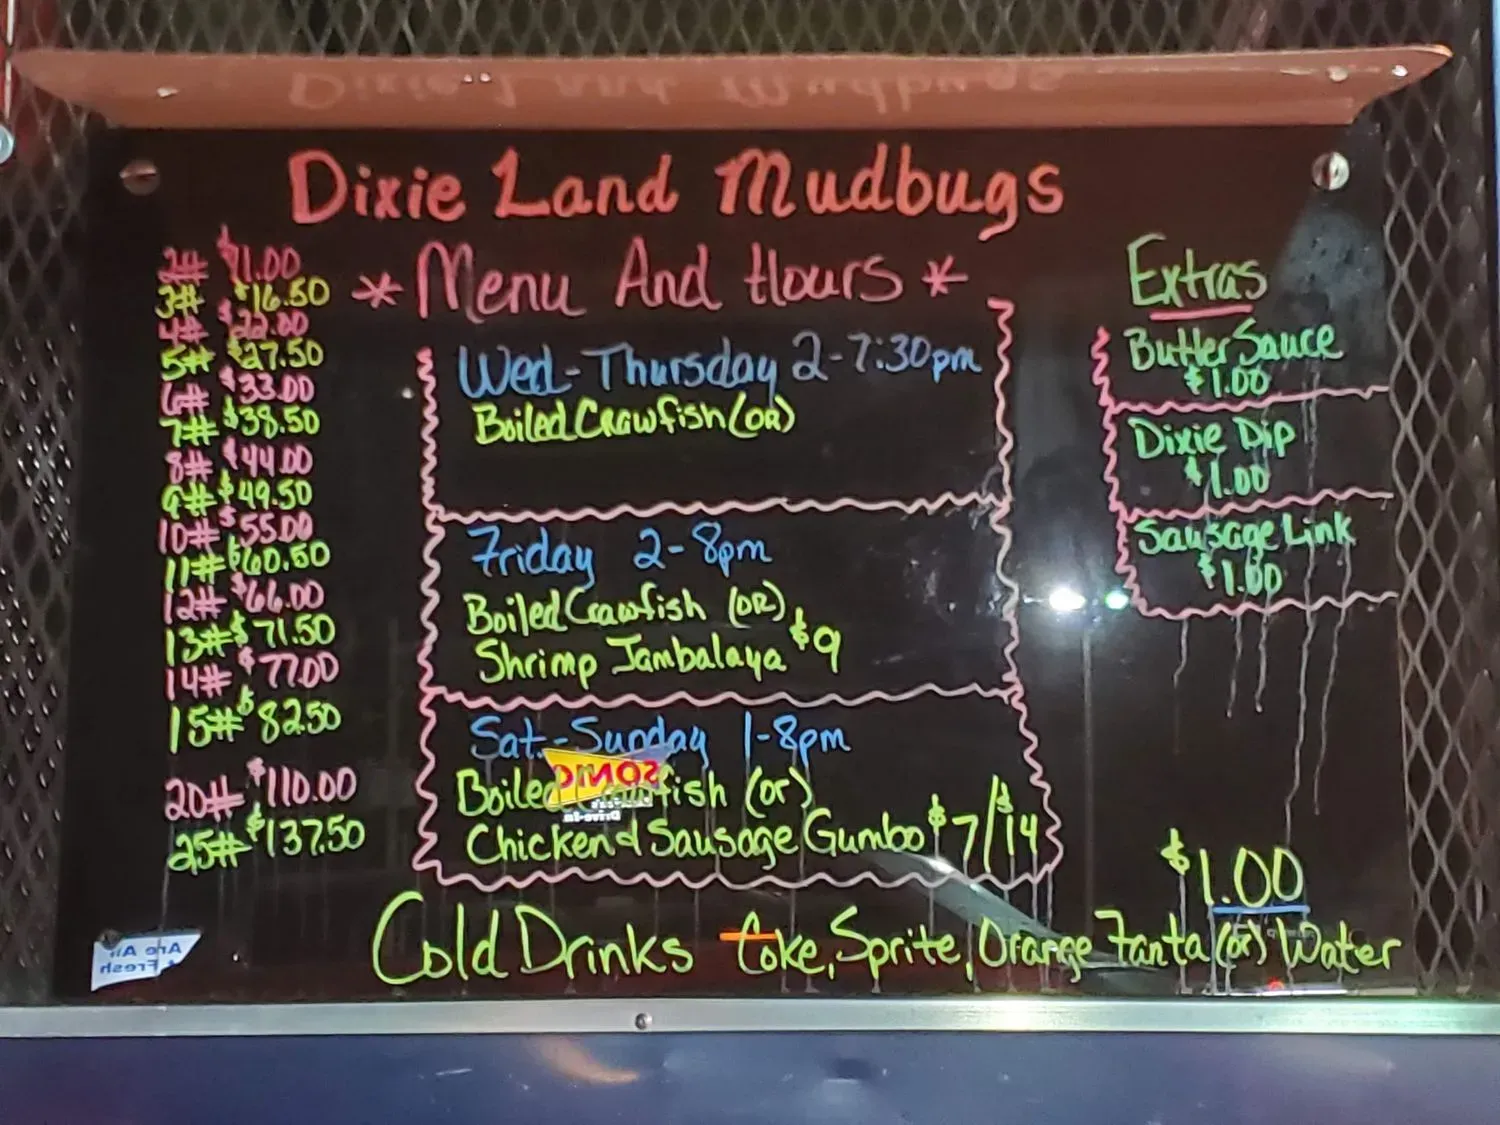 Dixie Land Mudbugs
* Menu And Hours *
2# $11.00
3# $16.50
4# $22.00
5# $27.50
6# $33.00
7# $38.50
8# $44.00
9# $49.50
10# $55.00
11# $60.50
12# $66.00
13# $71.50
14# $77.00
15# $82.50
20# $110.00
25# $137.50
Wed-Thursday 2-7:30pm
Boiled Crawfish (OR)
Friday 2-8pm
Boiled Crawfish (OR)
Shrimp Jambalaya $9
Sat.-Sunday 1-8pm
Boiled Crawfish (or)
Chicken & Sausage Gumbo $7/$14
Extras
Butter Sauce
$1.00
Dixie Dip
$1.00
Sausage Link
$1.00
$1.00
Cold Drinks Coke, Sprite, Orange Fanta (or) Water
SONIC
Drive-In